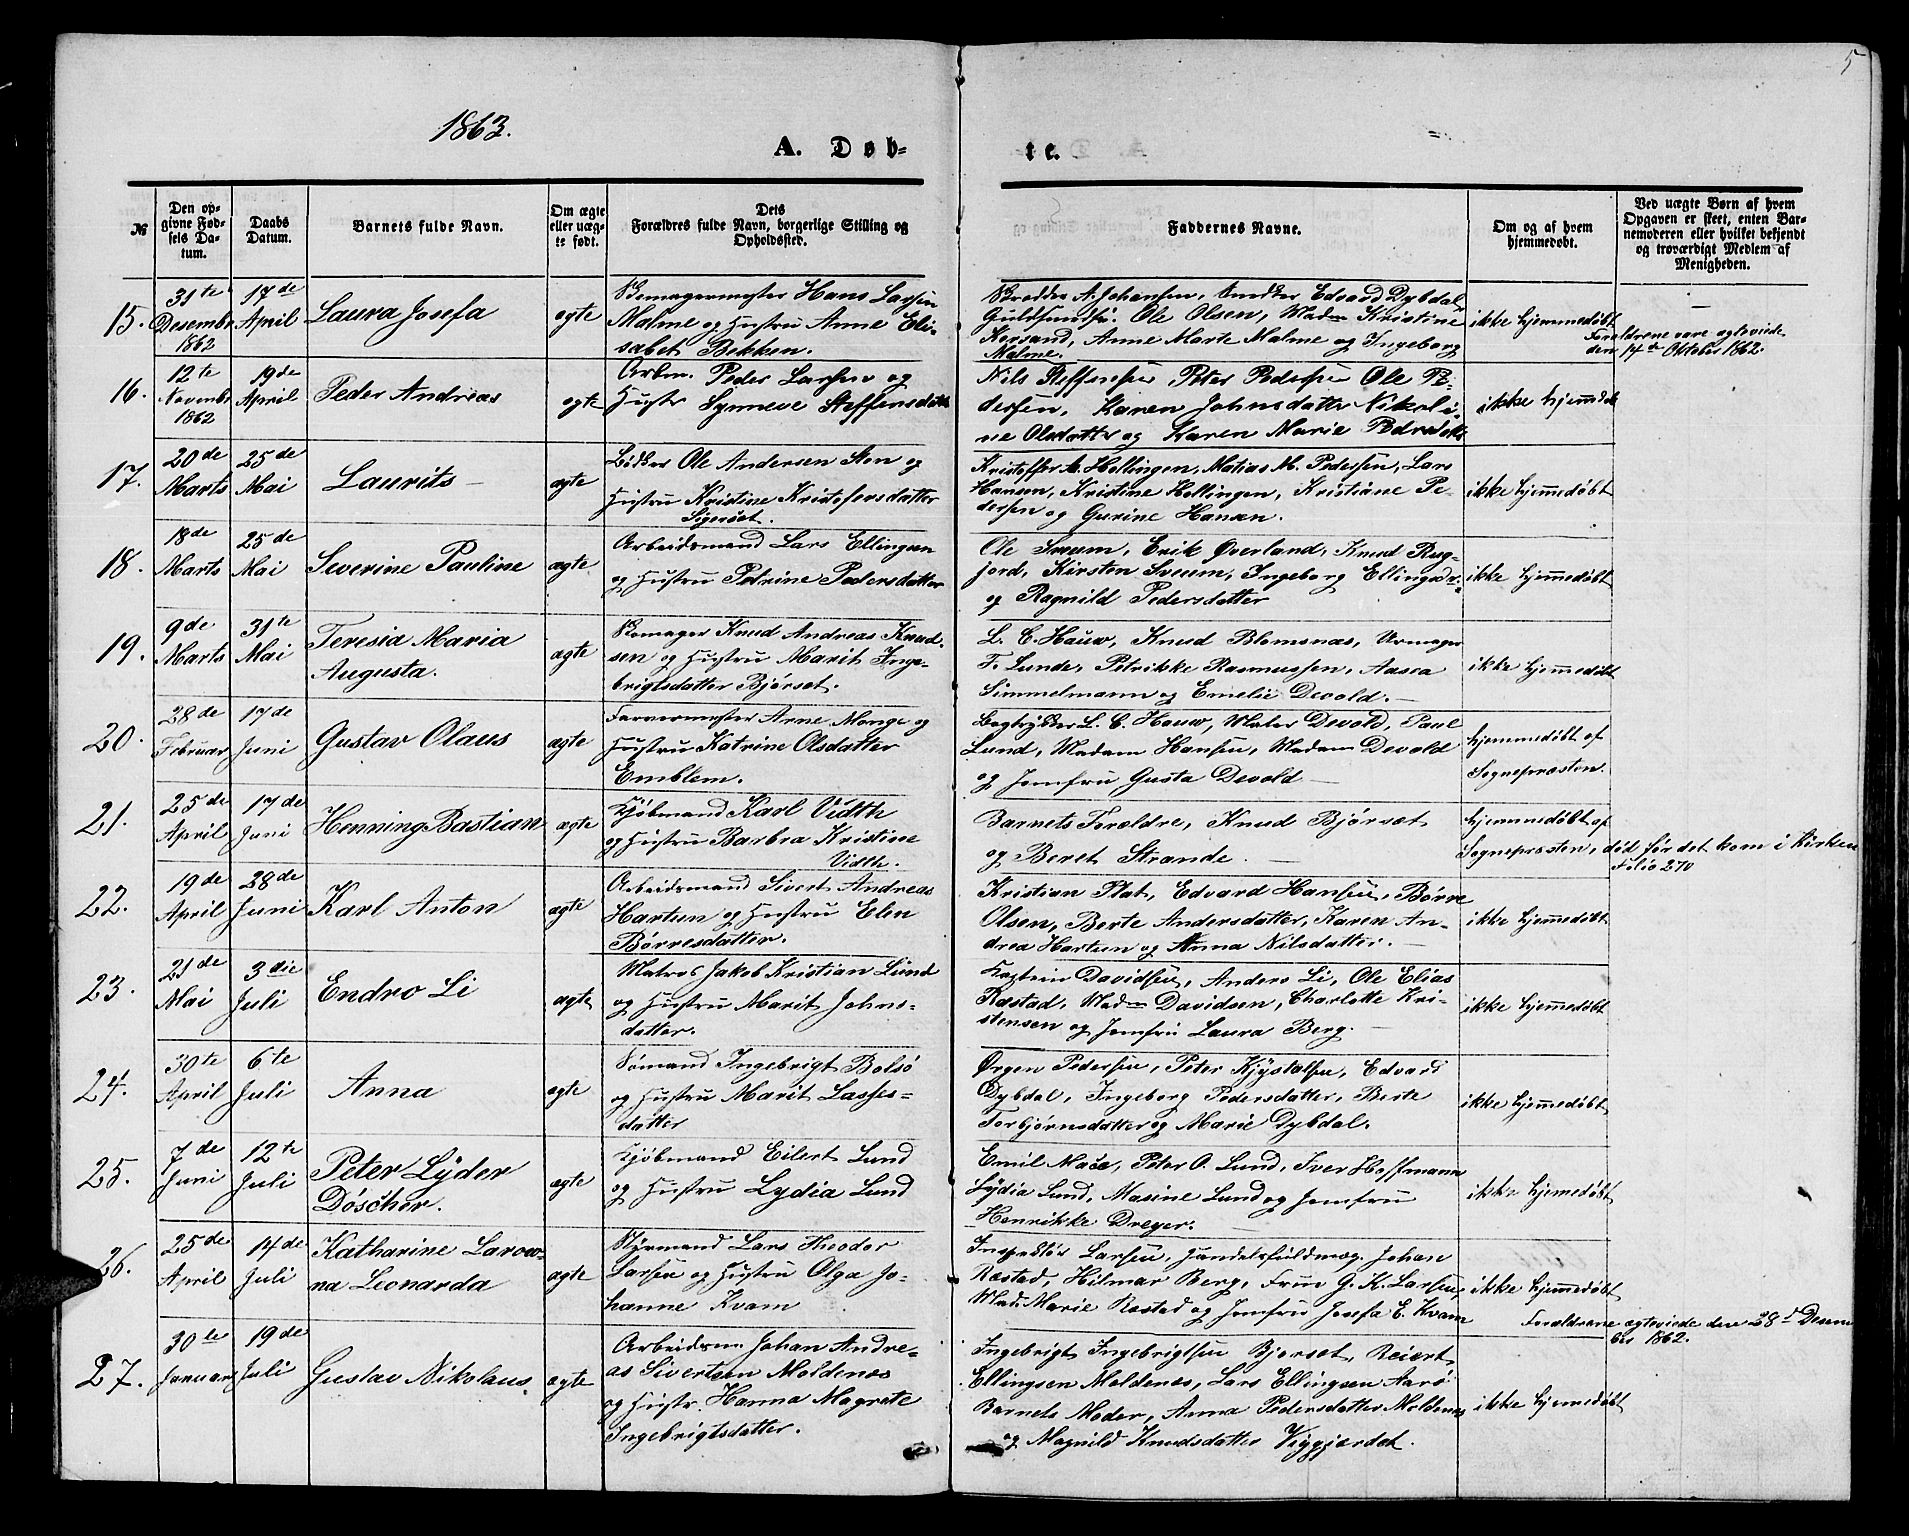 5
1863.
A. Døb-
te.
№
Den op-
givne Fød-
sels Da-
tum.
Daabs
Datum.
Barnets fulde Navn.
Om ægte
eller uæg-
te født.
Dets
Forældres fulde Navn, borgerlige Stilling og
Opholdssted.
Faddernes Navne.
Om og af hvem
hjemmedøbt.
Ved uægte Børn af hvem
Opgaven er skeet, enten Bar-
nemoderen eller hvilket bekjendt
og troværdigt Medlem af
Menigheden.
15.
31te
Desembr
1862
17de
April
Laura Josefa
ægte
Skomagermester Hans Larsen
Malme og Hustru Anne Eli-
sabet Bekken.
Skrædder A. Johansen, Snedker Edvard Dybdal
Guldsmed Ole Olsen, Madm Kristine
Korsand, Anne Marte Malme og Ingeborg
Malme.
ikke hjemmedøbt
Forældrene vare ægteviede
den 14de Oktober 1862.
16.
12te
Novembr
1862
19de
April
Peder Andreas
ægte
Arbm. Peder Larsen og
Hustr Synneve Steffensdatt
Nils Steffensen Peter Pedersen Ole Pe-
dersen, Karen Johnsdatter Nikoli-
ne Olsdatter og Karen Marie Pedersdatt
ikke hjemdøb
17.
20de
Marts
25de
Mai
Laurits
ægte
Bødker Ole Andersen Sten og
Hustru Kristine Kristofersdatter
Sigerset.
Kristoffer A. Hellingen, Matias M. Pedersen, Lars
Hansen, Kristine Hellingen, Kristiane Pe-
dersen og Gurine Hansen.
ikke hjemmedøbt
18.
18de
Marts
25de
Mai
Severine Pauline
ægte
Arbeidsmand Lars Ellingsen
og Hustru Petrine Pedersdatter
Ole Sveum, Erik Øverland, Knud Rug-
jord, Kirsten Sveum, Ingeborg Ellingsdr.
og Ragnild Pedersdatter
ikke hjemmedøbt
19.
9de
Marts
31te
Mai
Teresia Maria
Augusta.
ægte
Skomager Knud Andreas Knud-
sen og Hustru Marit Inge-
brigtsdatter Bjørset.
L. C. Hauw, Knud Blomsnas, Urmager
F. Lunde, Petrikke Rasmussen, Aasea
Simmelmann og Emelie Devold.
ikke hjemmedøbt
20.
28de
Februar
17de
Juni
Gustav Olaus
ægte
Farvermester Arne Monge og
Hustru Katrine Olsdatter
Emblem.
Bogtrykker L. C. Hauw, Maler Devold, Paul
Lund, Madam Hansen, Madam Devold
og Jomfru Gusta Devold
hjemmedøbt af
Sognepræsten.
21.
25de
April
17de
Juni
Henning Bastian
ægte
Kjøbmand Karl Vidth
og Hustru Barbra Kristine
Vidth.
Barnets Forældre, Knud Bjørset
og Beret Strande.
hjemmedøbt af
Sognepræsten, død før det kom i Kirken
Folio 270
22.
19de
April
28de
Juni
Karl Anton
ægte
Arbeidsmand Sivert Andreas
Hartun og Hustru Elen
Børresdatter.
Kristian Plat, Edvard Hansen, Børre
Olsen, Berte Andersdatter, Karen An-
drea Hartun og Anna Nilsdatter.
ikke hjemmedøbt
23.
21de
Mai
3die
Juli
Endro Li
ægte
Matros Jakob Kristian Lund
og Hustru Marit Johns-
datter.
Kaptein Davidsen, Anders Li, Ole Elias
Ræstad, Madm Davidsen, Charlotte Kri-
stensen og Jomfru Laura Berg.
ikke hjemmedøbt
24.
30te
April
6te
Juli
Anna
ægte
Sømand Ingebrigt Bolsø
og Hustru Marit Lasses-
datter
Ørgen Pedersen, Peter Kjøstolsen, Edvard
Dybdal, Ingeborg Pedersdatter, Berte
Torbjørnsdatter og Marie Dybdal.
ikke hjemmedøbt
25.
7de
Juni
12te
Juli
Peter Lyder
Døscher.
ægte
Kjøbmand Eilert Lund
og Hustru Lydia Lund
Emil Mace, Peter O. Lund, Iver Hoffmann
Lydia Lund, Masine Lund og Jomfru
Henrikke Dreyer.
ikke hjemedøbt
26.
25de
April
14de
Juli
Katharine Larow-
na Leonarda
ægte
Styrmand Lars Theodor
Larsen og Hustru Olga Jo-
hanne Kvam
Inspektør Larsen, Handelsfuldmæg. Johan
Ræstad, Hilmar Berg, Fru G. K. Larsen,
Mad. Marie Ræstad og Jomfru Josefa E. Kvam
ikke hjemmedøbt
Forældrene ægteviede den 28de Desem
ber 1862.
27.
30te
Januar
19de
Juli
Gustav Nikolaus
ægte
Arbeidsm Johan Andre-
as Sivertsen Moldenes
og Hustr. Hanna Magrete
Ingebrigtsdatter.
Ingebrigt Ingebrigtsen Bjørset, Reiert
Ellingsen Moldenes, Lars Ellingsen Aarø
Barnets Moder, Anna Pedersdatter Moldenes
og Magnild Knudsdatter Viggjerdet.
ikke hjemedøbt